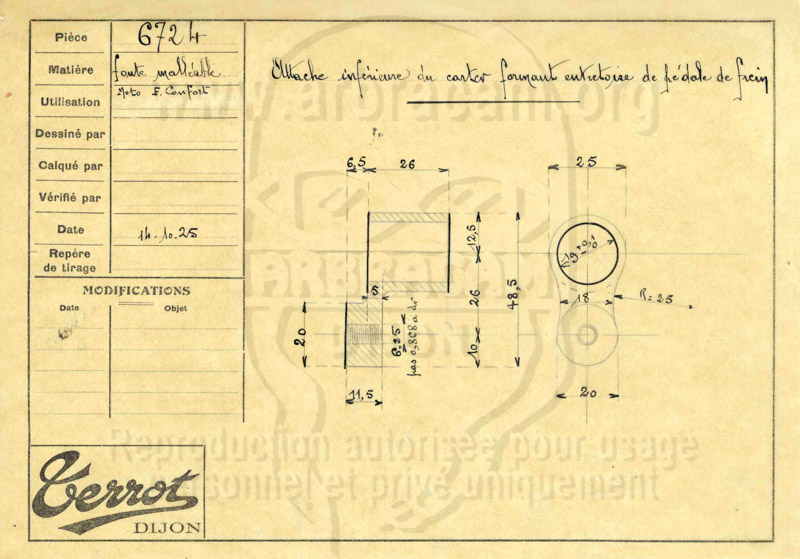 Pièce 6724
Attache inférieure du carter formant entretoise de pédale de frein
Matière fonte malléable
Utilisation Moto F. Confort
Dessiné par
Calqué par
Vérifié par
Date 14.10.25
Repère
de tirage
MODIFICATIONS
Date Objet
6,5 26
25
12,5
26
48,5
10
19
5
18
R=25
20
6.25
11,5
20
www.arbracam.org
ARBRACAM
DIJON
Reproduction autorisée pour usage
personnel et privé uniquement
Terrot
DIJON